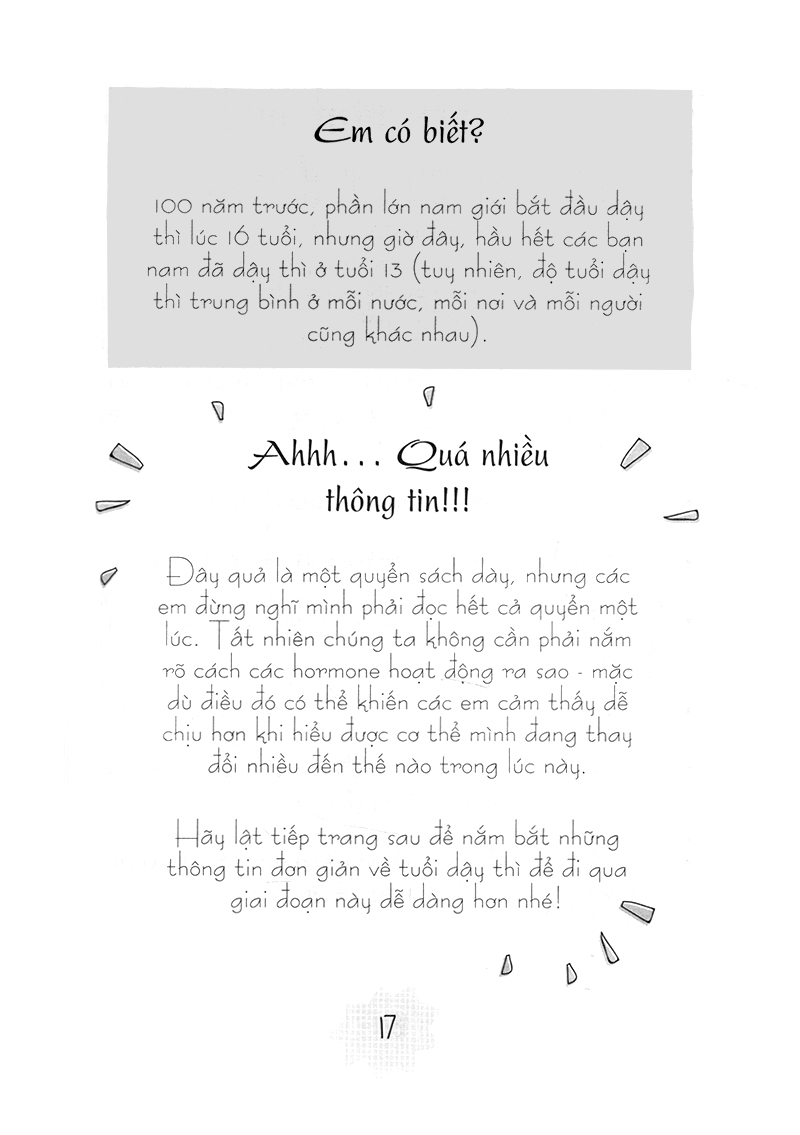 Em có biết?
100 năm trước, phần lớn nam giới bắt đầu dậy
thì lúc 16 tuổi, nhưng giờ đây, hầu hết các bạn
nam đã dậy thì ở tuổi 13 (tuy nhiên, độ tuổi dậy
thì trung bình ở mỗi nước, mỗi nơi và mỗi người
cũng khác nhau).
Ahhh... Quá nhiều
thông tin!!!
Đây quả là một quyển sách dày, nhưng các
em đừng nghĩ mình phải đọc hết cả quyển một
lúc. Tất nhiên chúng ta không cần phải nắm
rõ cách các hormone hoạt động ra sao - mặc
dù điều đó có thể khiến các em cảm thấy dễ
chịu hơn khi hiểu được cơ thể mình đang thay
đổi nhiều đến thế nào trong lúc này.
Hãy lật tiếp trang sau để nắm bắt những
thông tin đơn giản về tuổi dậy thì để đi qua
giai đoạn này dễ dàng hơn nhé!
17